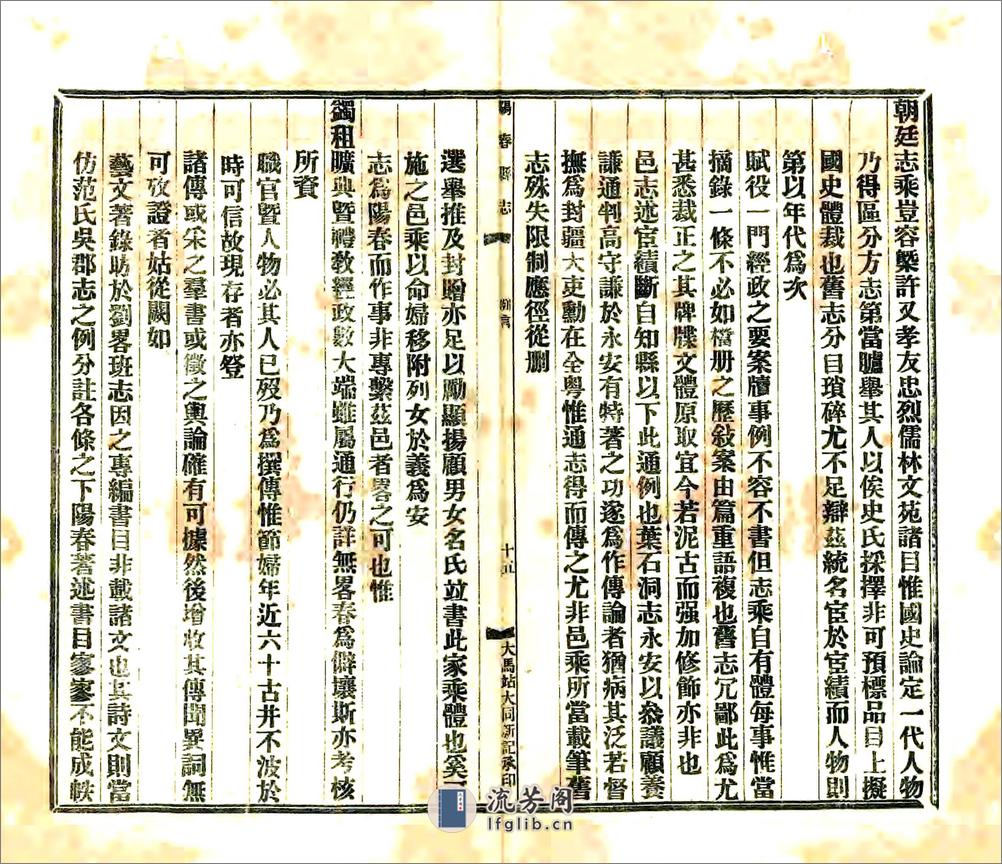 朝廷志乘豈容槩許又孝友忠烈儒林文苑諸目惟國史論定一代人物
乃得區分方志第當臚舉其人以俟史氏採擇非可預標品目上擬
國史體裁也舊志分目瑣碎尤不足辯茲統名宦於宦績而人物則
第以年代爲次
賦役一門經政之要案牘事例不容不書但志乘自有體每事惟當
摘錄一條不必如檔册之歷敍案由篇重語複也舊志冗鄙此爲尤
甚悉裁正之其牌牒文體原取宜今若泥古而强加修飾亦非也
邑志述宦績斷自知縣以下此通例也葉石洞志永安以叅議顧養
謙通判高守謙於永安有特著之功遂爲作傳論者猶病其泛若督
撫爲封疆大吏勳在全粤惟通志得而傳之尤非邑乘所當載筆舊
志殊失限制應徑從刪
陽春縣志
例言
十五
大馬站大同新記承印
選舉推及封贈亦足以勵顯揚顧男女名氏竝書此家乘體也奚
施之邑乘以命婦移附列女於義爲安
志爲陽春而作事非專繫茲邑者畧之可也惟
蠲租曠典暨禮敎經政數大端雖屬通行仍詳無畧春爲僻壤斯亦考核
所資
職官暨人物必其人已歿乃爲撰傳惟節婦年近六十古井不波於
時可信故現存者亦登
諸傳或采之羣書或徵之輿論確有可據然後增收其傳聞異詞無
可攷證者姑從闕如
藝文著錄昉於劉畧班志因之專編書目非載諸文也其詩文則當
仿范氏吳郡志之例分註各條之下陽春著述書目寥寥不能成帙
流芳阁
lfglib.cn